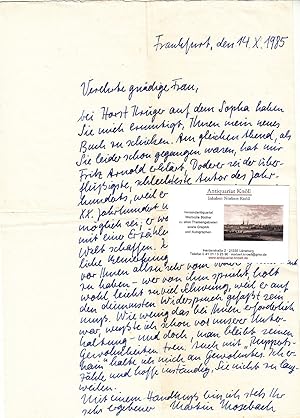 Frankfurt, den 14. X. 1985
Verehrte gnädige Frau,
bei Horst Krüger auf dem Sopha haben
Sie mich ermutigt, Ihnen mein neues
Buch zu schicken. Am gleichen Abend, als
Sie leider schon gegangen waren, hat mir
Fritz Arnold erklärt, Doderer sei der über-
flüssigste, schlechteste Autor des Jahr-
hunderts, weil er
XX. Jahrhundert
möglich sei, er
mit eine Erzähle
Welt schaffen.
liche
vor Ihnen allzu sehr vom
zu haben - wer von ihm spricht, holt
wohl leicht zu viel Schwung, weil er auf
den dümmsten Widerspruch gefaßt sein
muß. Wie wenig das bei Ihnen erforderlich
war, wußte ich schon vor unserer Unter-
haltung - und doch, man bleibt seinen
Gewohnheiten treu. Auch mit "Ruppers-
hain" halte ich mich an Gewohntes. Ich er-
zähle und hoffe inständig, Sie nicht zu lang-
weilen.
Mit einem Handkuß bin ich stets Ihr
sehr ergebener Martin Mosebach
Antiquariat Knöll
Inhaber Norbert Knöll
Versandantiquariat
Wertvolle Bücher
zu allen Themengebieten
sowie Graphik
und Autographen
Lüneburg